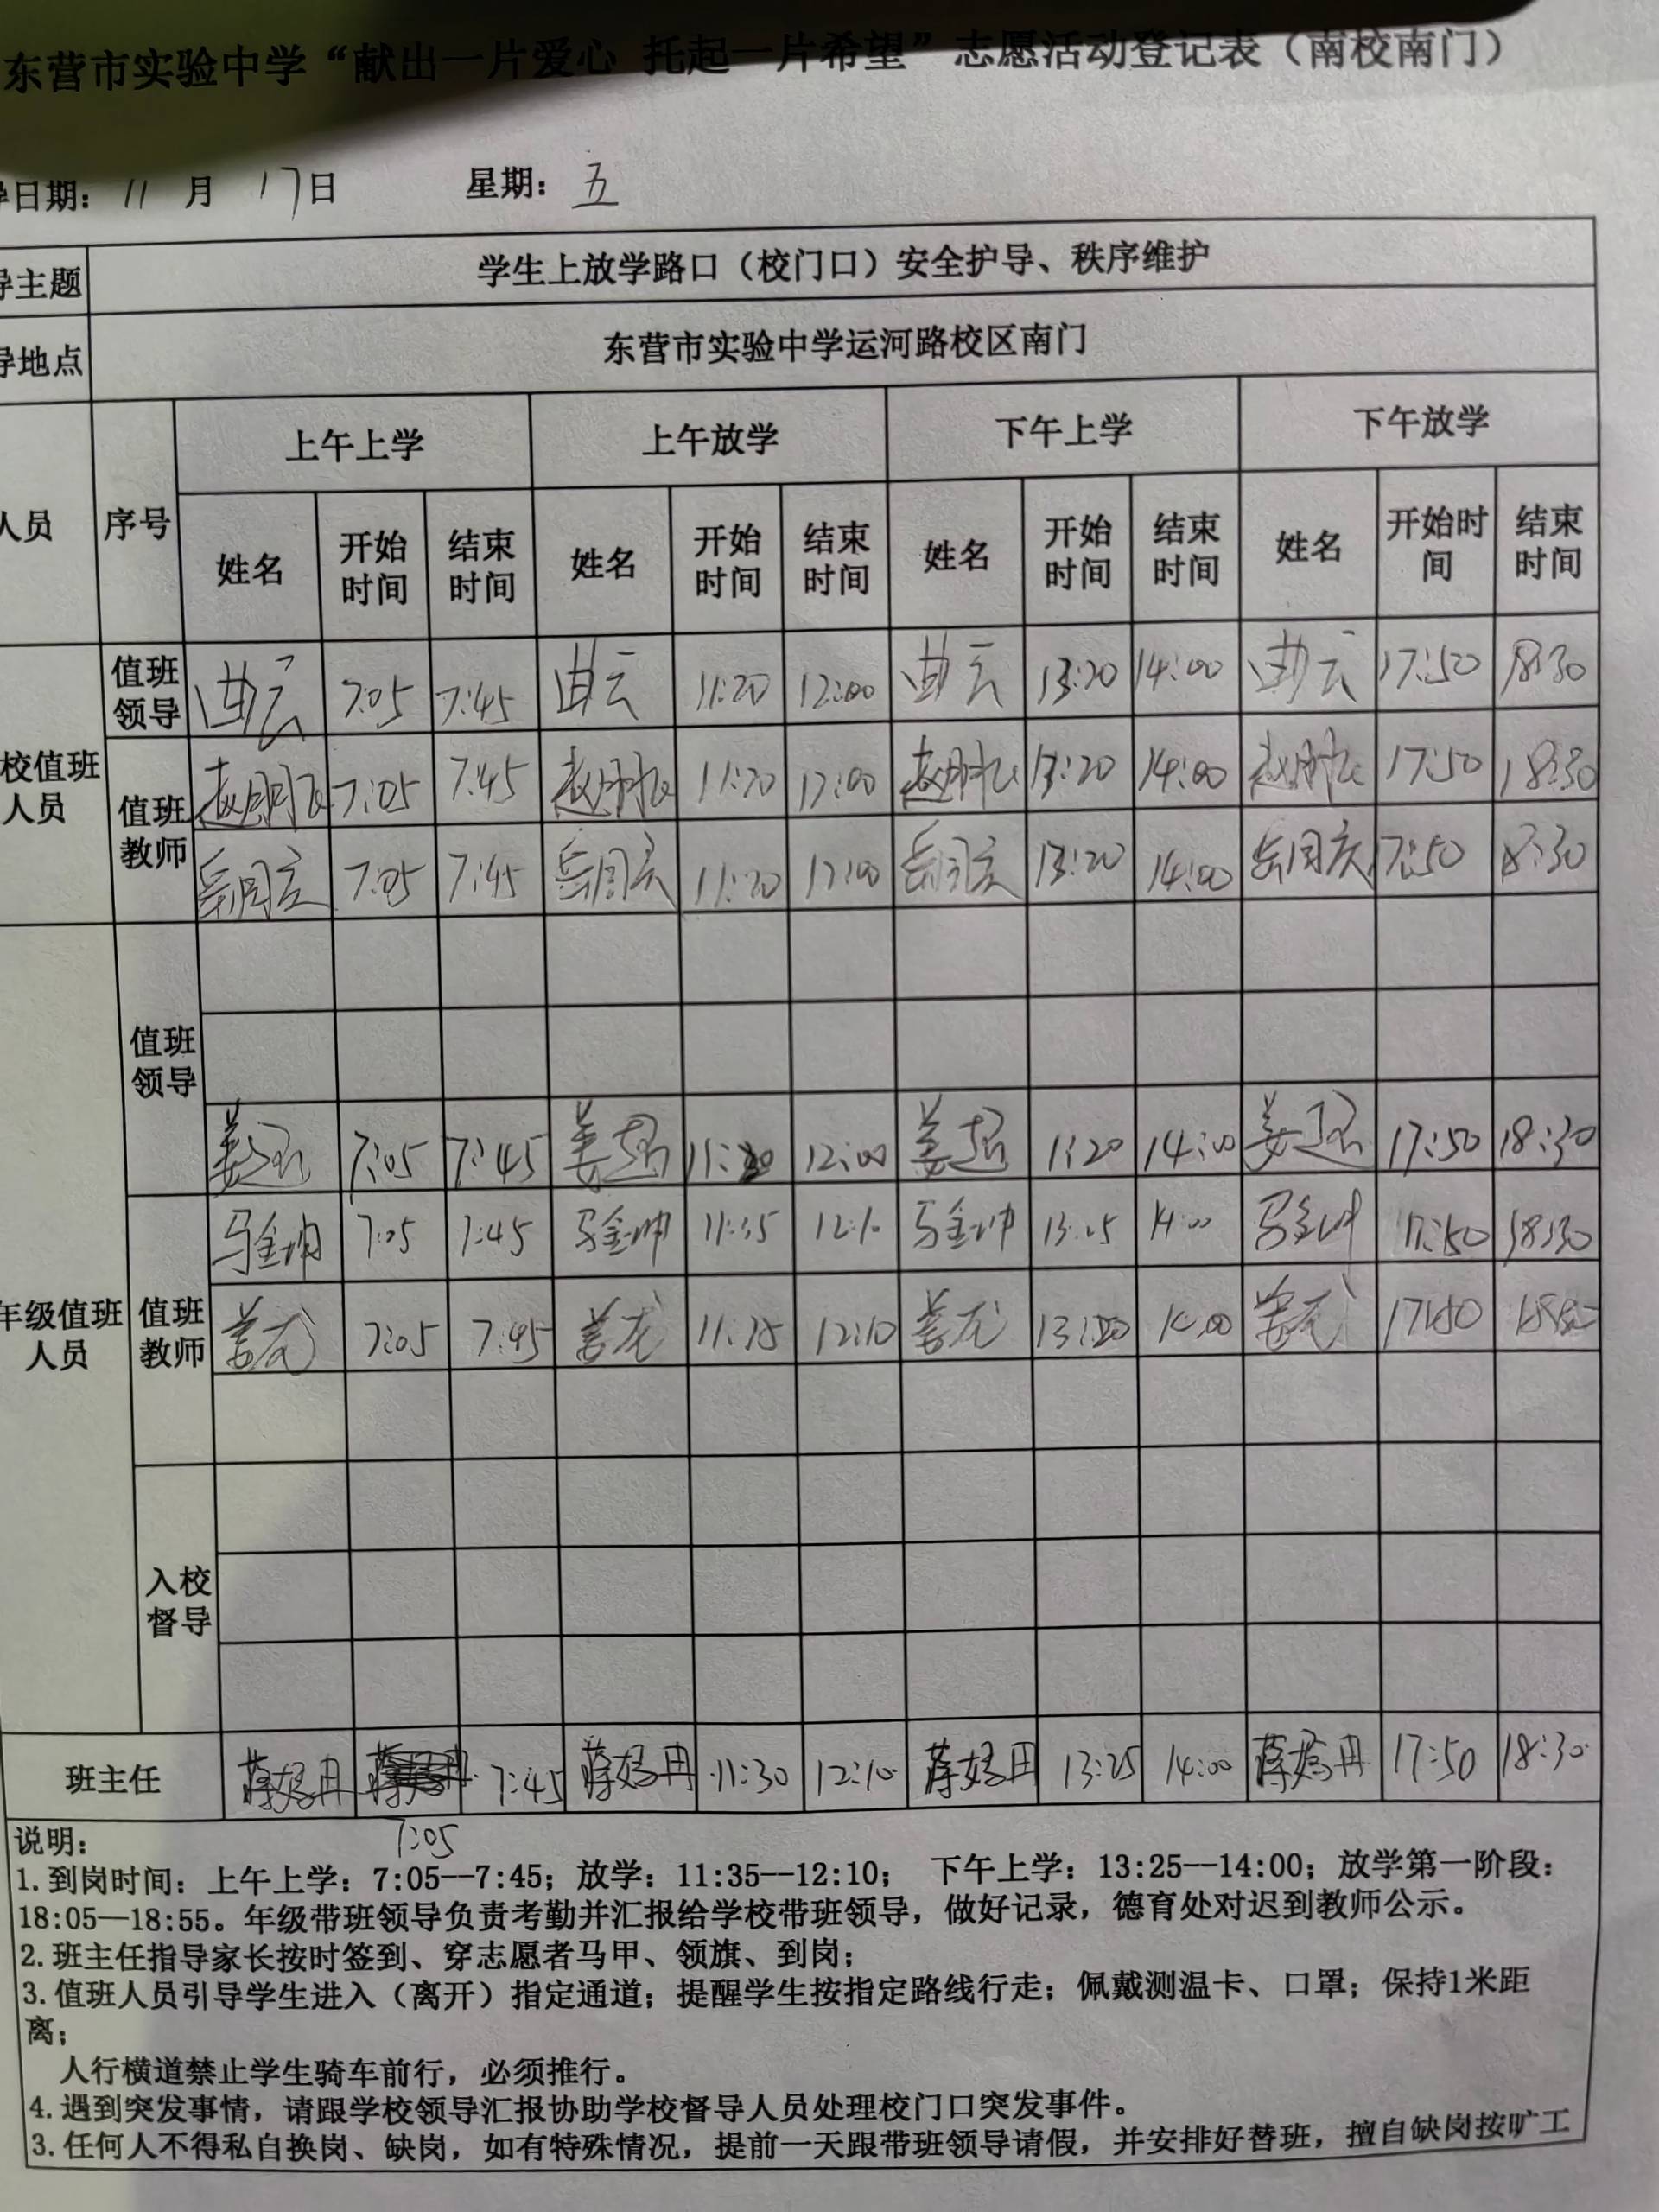 东营市实验中学“献出一片爱心 托起一片希望”志愿活动登记表（南校南门）
导日期：11月17日 星期：五
导主题 学生上放学路口（校门口）安全护导、秩序维护
导地点 东营市实验中学运河路校区南门
人员 序号 上午上学 上午放学 下午上学 下午放学
姓名 开始时间 结束时间 姓名 开始时间 结束时间 姓名 开始时间 结束时间 姓名 开始时间 结束时间
校值班人员 值班领导 曲云 7:05 7:45 曲云 11:20 12:00 曲云 13:20 14:00 曲云 17:50 18:30
值班教师 7:05 7:45 11:20 12:00 13:20 14:00 17:50 18:30
岳国庆 7:05 7:45 岳国庆 11:20 12:00 岳国庆 13:20 14:00 岳国庆 17:50 18:30
年级值班人员 值班领导 姜超 7:05 7:45 姜超 11:20 12:00 姜超 1:20 14:00 姜超 17:50 18:30
值班教师 马金坤 7:05 7:45 马金坤 11:35 12:10 马金坤 13:25 14:00 马金坤 17:50 18:30
7:05 7:45 12:10 17:50
入校督导
班主任 7:45 11:30 12:10 13:25 14:00 17:50 18:30
7:05
说明：
1.到岗时间：上午上学：7:05--7:45；放学：11:35--12:10； 下午上学：13:25--14:00；放学第一阶段：
18:05—18:55。年级带班领导负责考勤并汇报给学校带班领导，做好记录，德育处对迟到教师公示。
2.班主任指导家长按时签到、穿志愿者马甲、领旗、到岗；
3.值班人员引导学生进入（离开）指定通道；提醒学生按指定路线行走；佩戴测温卡、口罩；保持1米距
离；
人行横道禁止学生骑车前行，必须推行。
4.遇到突发事情，请跟学校领导汇报协助学校督导人员处理校门口突发事件。
3.任何人不得私自换岗、缺岗，如有特殊情况，提前一天跟带班领导请假，并安排好替班，擅自缺岗按旷工